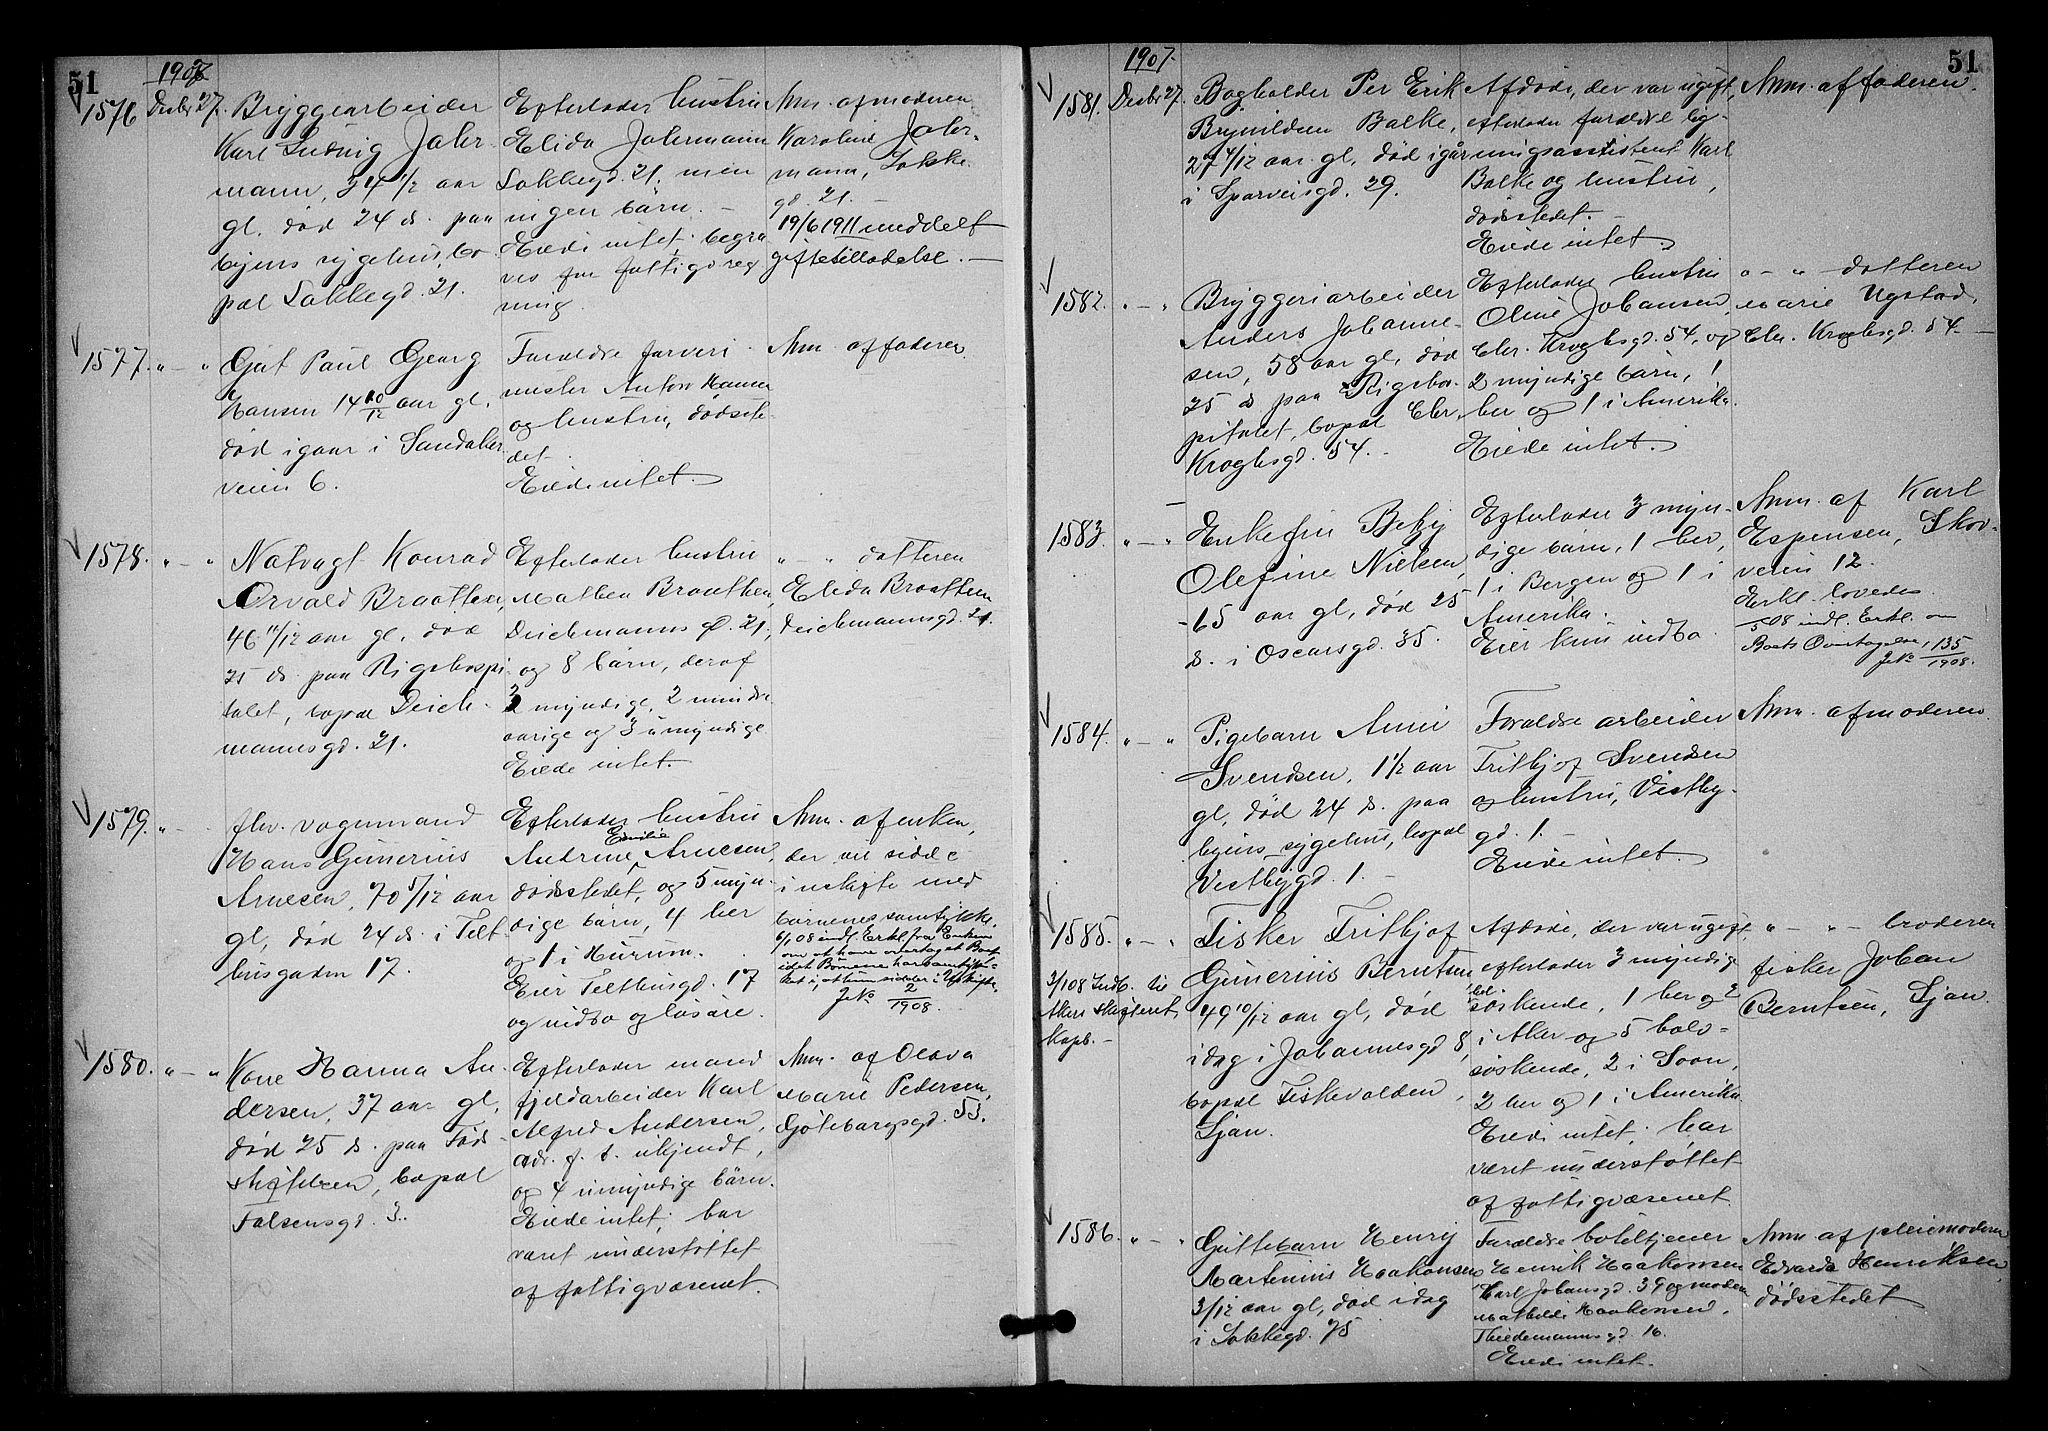 51
1907
1576 Desbr 27.
Bryggearbeider
Karl Ludvig Jahr-
mann, 34 1/2 aar
gl. død 24 ds. paa
byens sygehus, bo-
pæl Lakkegd. 21.
Efterlader hustru
Elida Jahrmann
Lakkegd. 21, men
ingen børn. –
Eiede intet; begra
ves for fattigvæs reg
ning.
Anm. af moderen
Karoline Jahr-
mann, Lakke-
gd. 21. –
19/6 1911 meddelt
giftetilladelse. –
1577. " – "
Gut Paul Georg
Hansen 14 10/12 aar gl.
død igaar i Sandaker
veien 6.
Forældre farveri
mester Anton Hansen
og hustru, dødsste-
det.
Eiede intet.
Anm. af faderen
1578. " – "
Natvagt Konrad
Orvald Braathen,
46 11/12 aar gl. død
25 ds. paa Rigshospi
talet, bopæl Deich-
mannsgd. 21.
Efterlader hustru
Mathea Braathen,
Deichmanns gd. 21,
og 8 børn, deraf
3 myndige, 2 mindre
aarige og 3 umyndige
Eiede intet.
" – " datteren
Elida Braathen
Deichmannsgd. 21.
1579. " –
fhv. vognmand
Hans Gunerius
Arnesen, 70 5/12 aar
gl, død 24 ds. i Telt-
husgaden 17.
Efterlader hustru
Emilie
Andrine Arnesen,
dødsstedet, og 5 myn-
dige børn, 4 her
og 1 i Hurum.
Eier Telthusgd. 17
og indbo og løsøre.
Anm. af enken,
der vil sidde
i uskifte med
børnenes samtykke.
6/1 08 indl. Erkl. fra Enken
om at have overtaget Boet
idet Børnene har samtyk-
ket i, at hun sidder i Uskifte.
JNo 2/1908.
1580. " – "
Kone Hanna An-
dersen, 37 aar gl,
død 25 ds. paa Føds-
stiftelsen, bopæl
Falsensgd. 3.
Efterlader mand
fjeldarbeider Karl
Alfred Andersen,
adr. f. t. ukjendt,
og 4 umyndige børn.
Eiede intet; har
været understøttet
af fattigvæsenet.
Anm. af Olava
Marie Pedersen,
Gøteborgsgd. 53.
51
1907.
1581. Desbr 27.
Bogholder Per Erik
Brynildsen Balke,
27 4/12 aar. gl, død igår
i Sparveisgd. 29.
Afdøde, der var ugift,
efterlader forældre byg-
ningsassistent Karl
Balke og hustru,
dødsstedet. –
Eiede intet.
Anm. af faderen.
1582. " – "
Bryggeriarbeider
Anders Johanne-
sen, 58 aar gl, død
25 ds paa Rigshos-
pitalet, bopæl Chr.
Kroghsgd. 54. –
Efterlader hustru
Oline Johansen,
Chr. Kroghsgd. 54, og
2 myndige børn, 1
her og 1 i Amerika.
Eiede intet.
" – " – datteren
Marie Ugstad,
Chr. Kroghsgd. 54. –
1583. " – "
Enkefru Betzy
Olefine Nielsen,
65 aar gl, død 25
ds. i Oscarsgd. 35.
Efterlader 3 myn-
dige børn, 1 her,
1 i Bergen og 1 i
Amerika.
Eier kun indbo.
Anm. af Karl
Espensen, Skov-
veien 12.
Erkl. lovedes.
08 indl. Erkl. om
Boets Overtagelse,
JNo 135/1908.
1584. " – "
Pigebarn Anni
Svendsen, 1 1/2 aar
gl, død 24 ds. paa
byens sygehus, bopæl
Vestbygd. 1. –
Forældre arbeider
Fritbjof Svendsen
og hustru, Vestby-
gd. 1. –
Eiede intet.
Anm. af moderen.
1585. " – "
3/1 08 Indb. til
Akers Skifteret,
Kapb. –
Fisker Fritbjof
Gunerius Berntsen
49 10/12 aar gl, død
idag i Johannesgd 8,
bopæl Fiskevolden,
Ljan.
Afdøde, der var ugift,
efterlader 3 myndige
hel-
søskende, 1 her og 2
i Aker og 5 halv-
søskende, 2 i Soon,
2 her og 1 i Amerika.
Eiede intet; har
været understøttet
af fattigvæsenet.
" – " – broderen
fisker Johan
Berntsen, Ljan.
1586. " – "
Guttebarn Henry
Martinius Haakonsen
3/12 aar gl, død idag
i Lakkegd. 75
Forældre hoteltjener
Henrik Haakonsen
Karl Johansgd. 39 og moder
Mathilde Haakonsen,
Thiedemannsgd. 16.
Eiede intet.
Anm. af pleiemoderen
Edvarda Henriksen,
dødsstedet